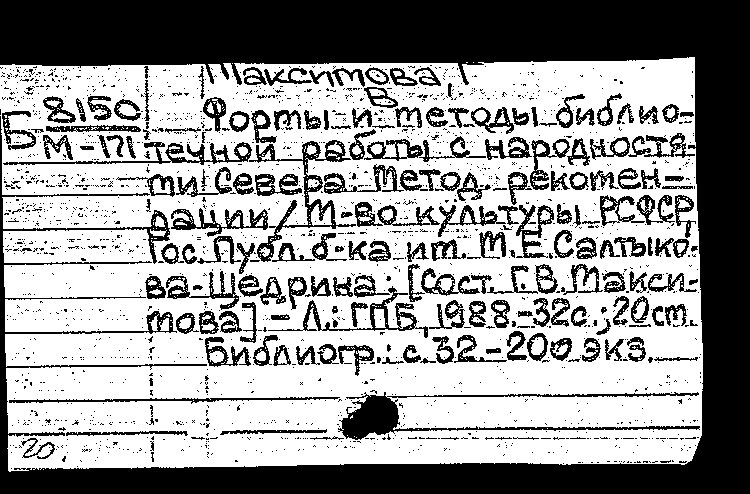 Максимова, Г
В
Б 8150 Формы и методы библио-
М-171 течной работы с народностя-
ми Севера: Метод. рекомен-
дации / М-во культуры РСФСР,
Гос. Публ. б-ка им. М.Е.Салтыко-
ва-Щедрина; [Сост. Г.В.Макси-
мова] - Л.: ГПБ, 1988.-32с.; 20см.
Библиогр.: с.32.-200 экз.
20.